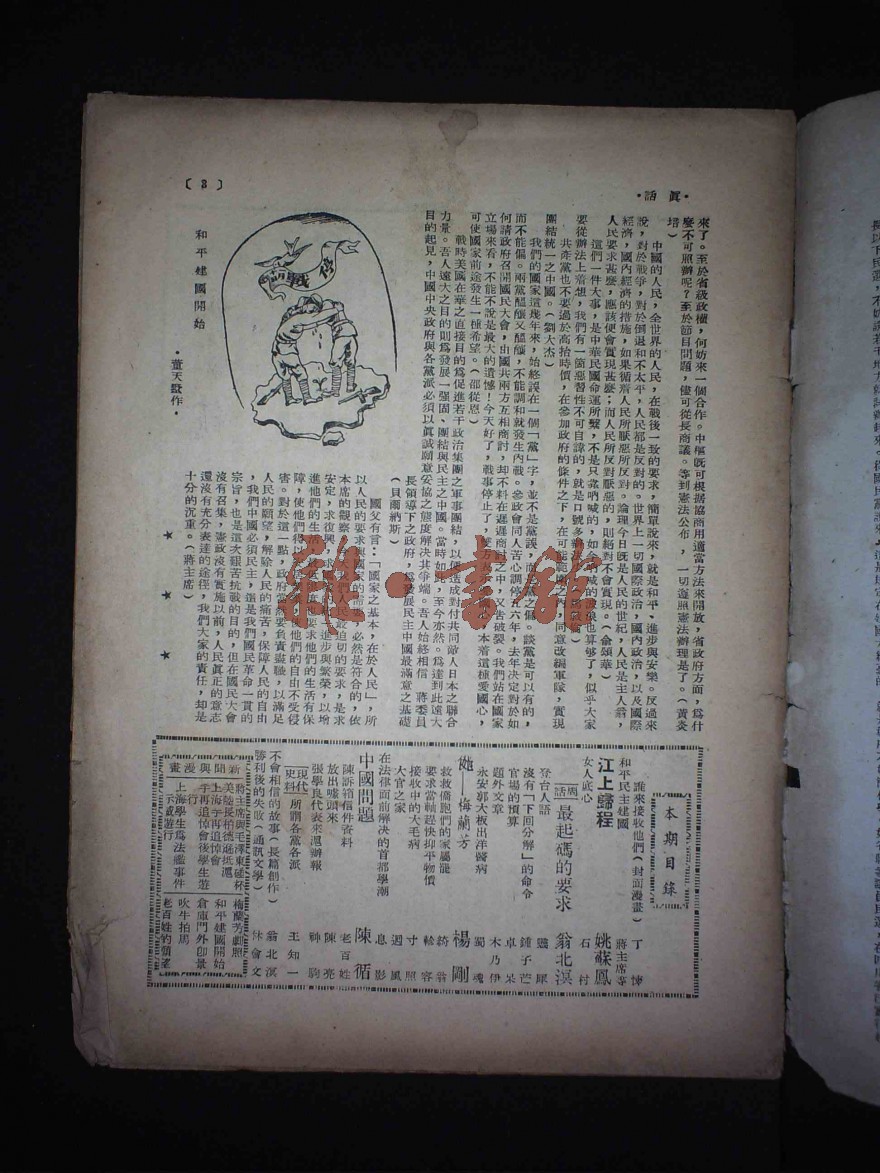 ·眞話·
〔3〕
來了。至於省級政權，何妨來一個合作。中樞既可根據協商用適當方法來開放，省政府方面，爲什
麼不可照辦呢？至於節目問題，儘可從長商議。等到憲法公布，一切遵照憲法辦理是了。（黃炎
培）
中國的人民，全世界的人民，在戰後一致的要求，簡單說來，就是和平、進步與安樂。反過來
說，對於戰爭，對於倒退和不太平，人民都是反對的。世界上一切國際政治，國內政治，以及國際
經濟，國內經濟的措施，如果循着人民所厭惡所反對。論理今日既是人民的世紀，人民是主人翁，
人民要求甚麼，應該便會實現甚麼；而人民所反對厭惡的，則絕對不會實現。（俞頌華）
這們一件大事，是中華民國命運所繫，不是只靠吶喊的，如今吶喊的
也算够了，似乎大家
要從辦法上着想，我們有一個惡習性不可自諱的，就是口號多
共產黨也不要過於高抬時價，在參加政府的條件之下，在可能範圍之內，同意改編軍隊，實現
團結統一之中國。（劉大杰）
我們的國家這幾年來，始終誤在一個「黨」字，並不是黨誤，而
黨之偏。談黨是可以有的，
而不能偏。兩黨醞釀又醞釀，不能調和就發生內戰。參政會同人苦心調停五六年，去年決定對於如
何請政府召開國民大會，由國共兩方互相商討，却不料在遲遲商討之中，又告破裂。我們站在國家
立場來看，不能不說是最大的遺憾！今天好了，戰事停止了，雙方
本着這種愛國心，
可使國家前途發生一種希望。（邵從恩）
戰時美國在華之直接目的爲促進若干政治集團之軍事團結，以便造成對付共同敵人日本之聯合
力量。吾人遠大之目的則爲發展一強固、團結與民主之中國。當時如是，至今亦然。爲達到此遠大
目的起見，中國中央政府與各黨派必須以眞誠願意妥協之態度解決其爭端。吾人始終相信蔣委員
長領導下之政府，爲發展民主中國最滿意之基礎
（貝爾納斯）
國父有言：「國家之基本，在於人民」，所
以人民的要求與國家的需要，必然是符合的，依
本席的觀察，
我們人民最迫切的要求，是求
安定，求復興，
進步與繁榮，以增
進他們的生活，
要求他們的生活有保
障，使他們得以
使他們的自由不受侵
害。對於這一點，政府當然要負責盡職，以滿足
人民的願望，解除人民的痛苦，保障人民的自由
，我們中國必須民主，還是我們國民革命一貫的
宗旨，也是這次艱苦抗戰的目的，但在國民大會
沒有召集，憲政沒有實施以前，人民眞正的意志
還沒有充分表達的途徑，我們大家的責任，却是
十分的沉重。（蔣主席）
★ ★ ★
停戰
和平建國開始
·董天野作·
雅·書館
本期目錄
誰來接收他們（封面漫畫） 丁悚
和平民主建國 蔣主席等
江上歸程 姚蘇鳳
女人底心 石村
周話 最起碼的要求 翁北溟
登台人語
沒有「下回分解」的命令 鍾子芒
官場的預算 卓呆
題外文章 木乃伊
永安郭大板出洋醫病 蜀魂
她—梅蘭芳 楊剛
救救僑胞們的家屬罷
要求當軸趕快抑平物價
接收中的大毛病 寸照
大官之家 週風
在法律面前解決的首都學潮 息影
中國問題 陳循
陳訴箱信件資料 老百姓
放出噱頭來 陳亮
張學良代表來滬辦報 神駒
現代史料 所謂各黨各派 王知一
不會相信的故事（長篇創作） 翁北溟
勝利後的失敗（通訊文學） 林會文
新聞與漫畫
蔣主席與毛澤東碰杯
美陸長柏德遜抵滬
上海于再追悼會
于再追悼會後學生遊行
上海學生爲法艦事件示威遊行
梅蘭芳劇照
和平建國開始
倉庫門外卽景
吹牛拍馬
老百姓的願望